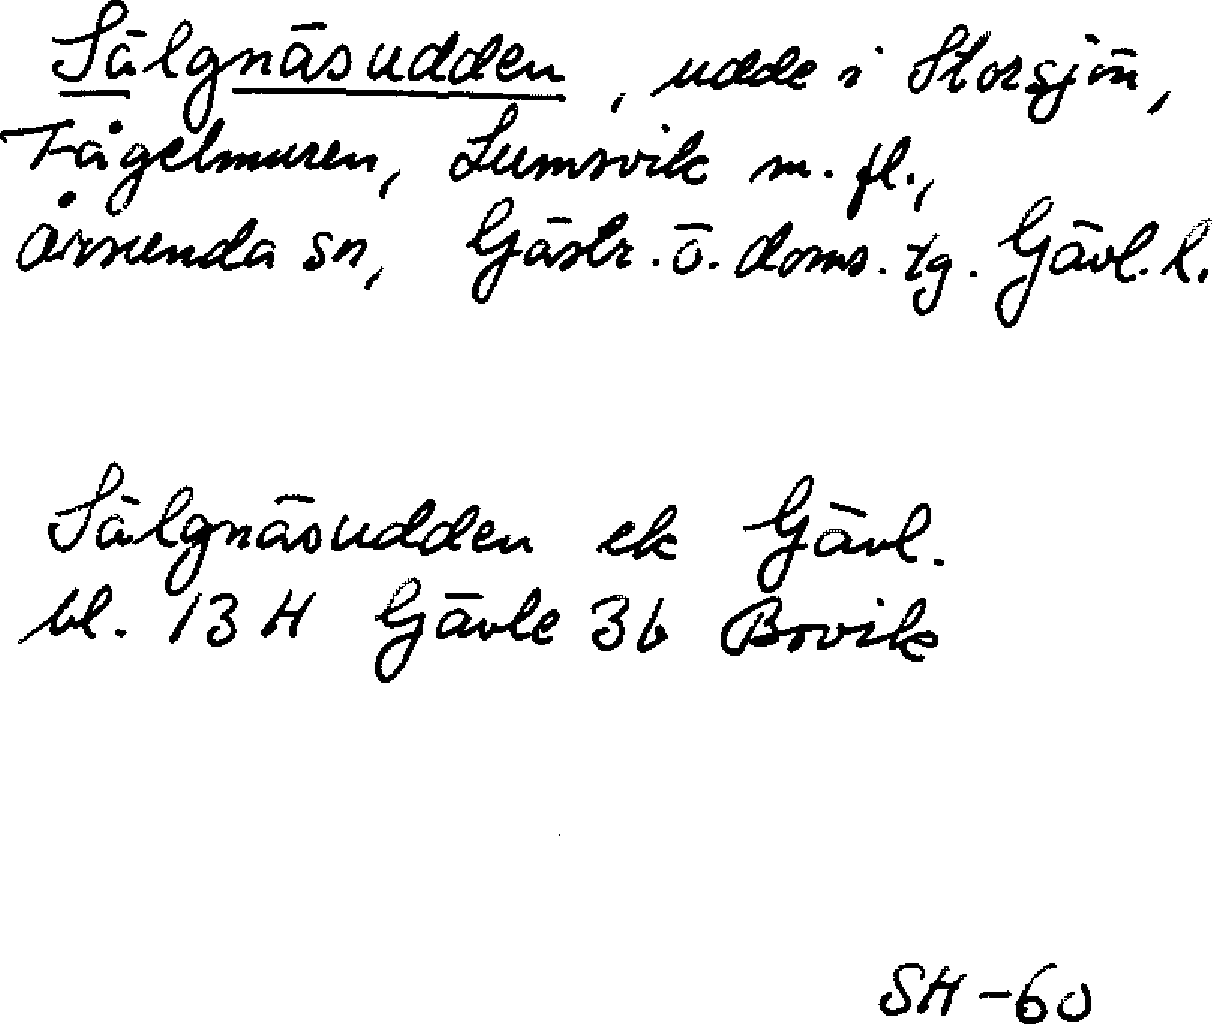 Sälgnäsudden, udde i Storsjön,
Fågelmuren, Lumsvik m. fl.,
Årsunda sn, Gästr. ö. doms. tg. Gävl. l.
Sälgnäsudden ek Gävl.
bl. 13 H Gävle 3b Bovik
SH-60